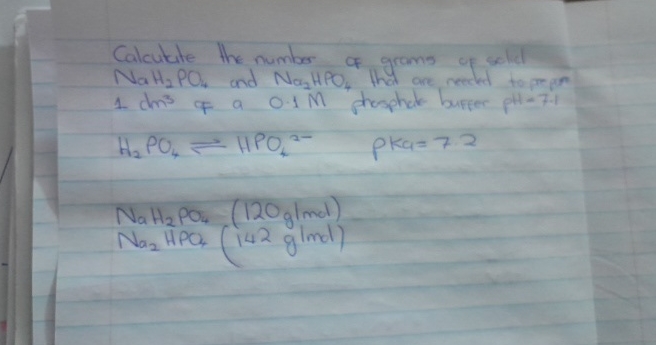 Calculate the number of grams of solid
NaH₂PO₄ and Na₂HPO₄ that are needed to prepare
1 dm³ of a 0.1M phosphate buffer pH=7.1
H₂PO₄ ⇌ HPO₄²⁻ pKa=7.2
NaH₂PO₄ (120g/mol)
Na₂HPO₄ (142 g/mol)